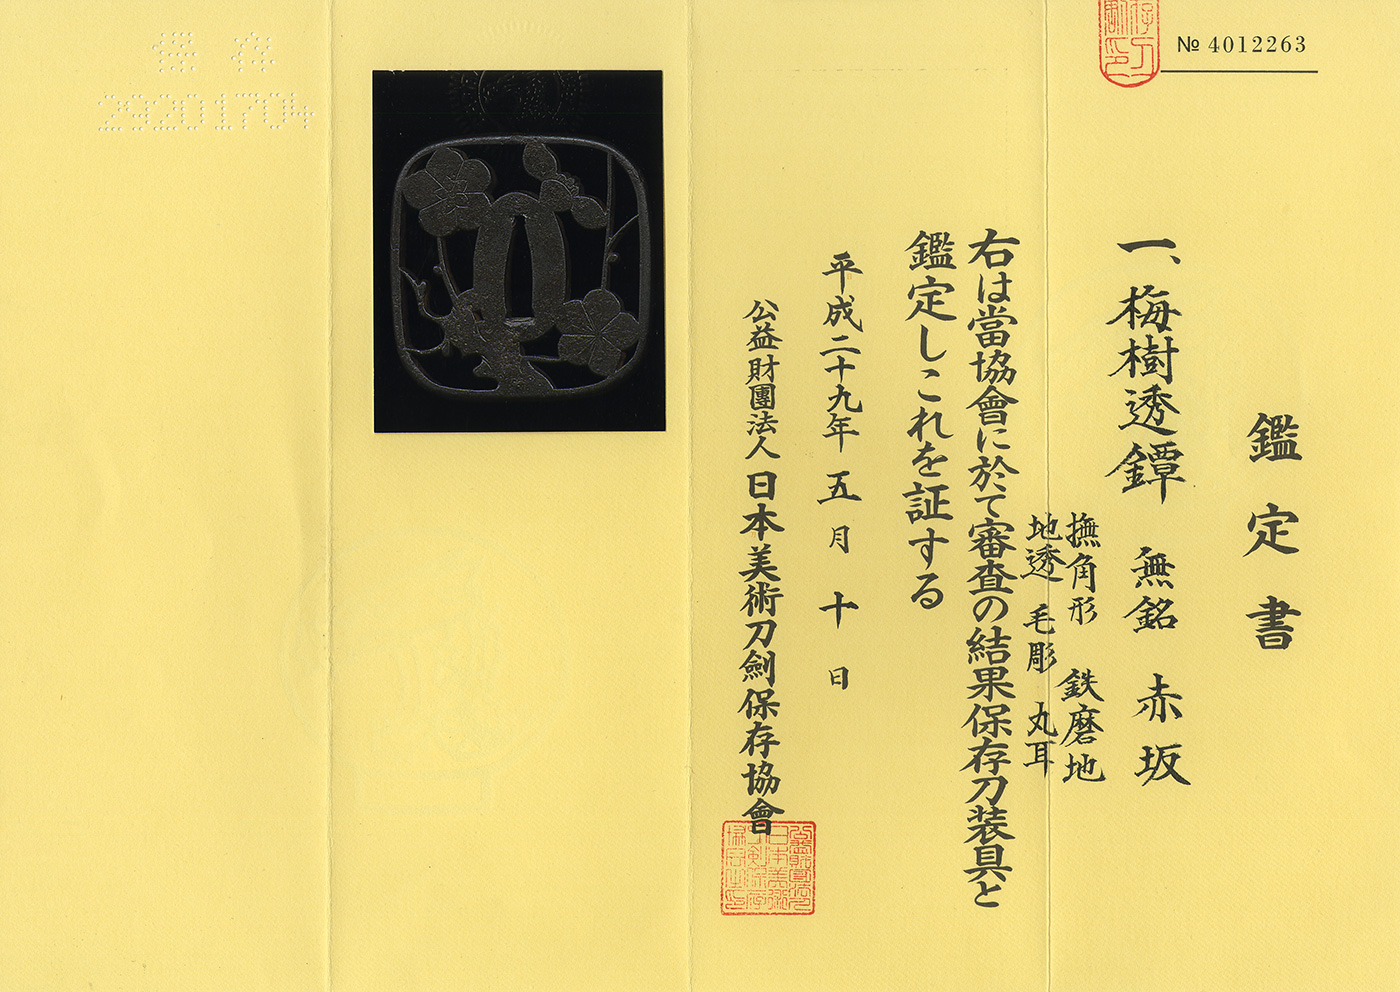 № 4012263
鑑定書
一、梅樹透鐔 無銘 赤坂
撫角形 鉄磨地
地透 毛彫 丸耳
右は當協會に於て審査の結果保存刀装具と
鑑定しこれを証する
平成二十九年五月十日
公益財團法人日本美術刀劍保存協會
保存
29201704